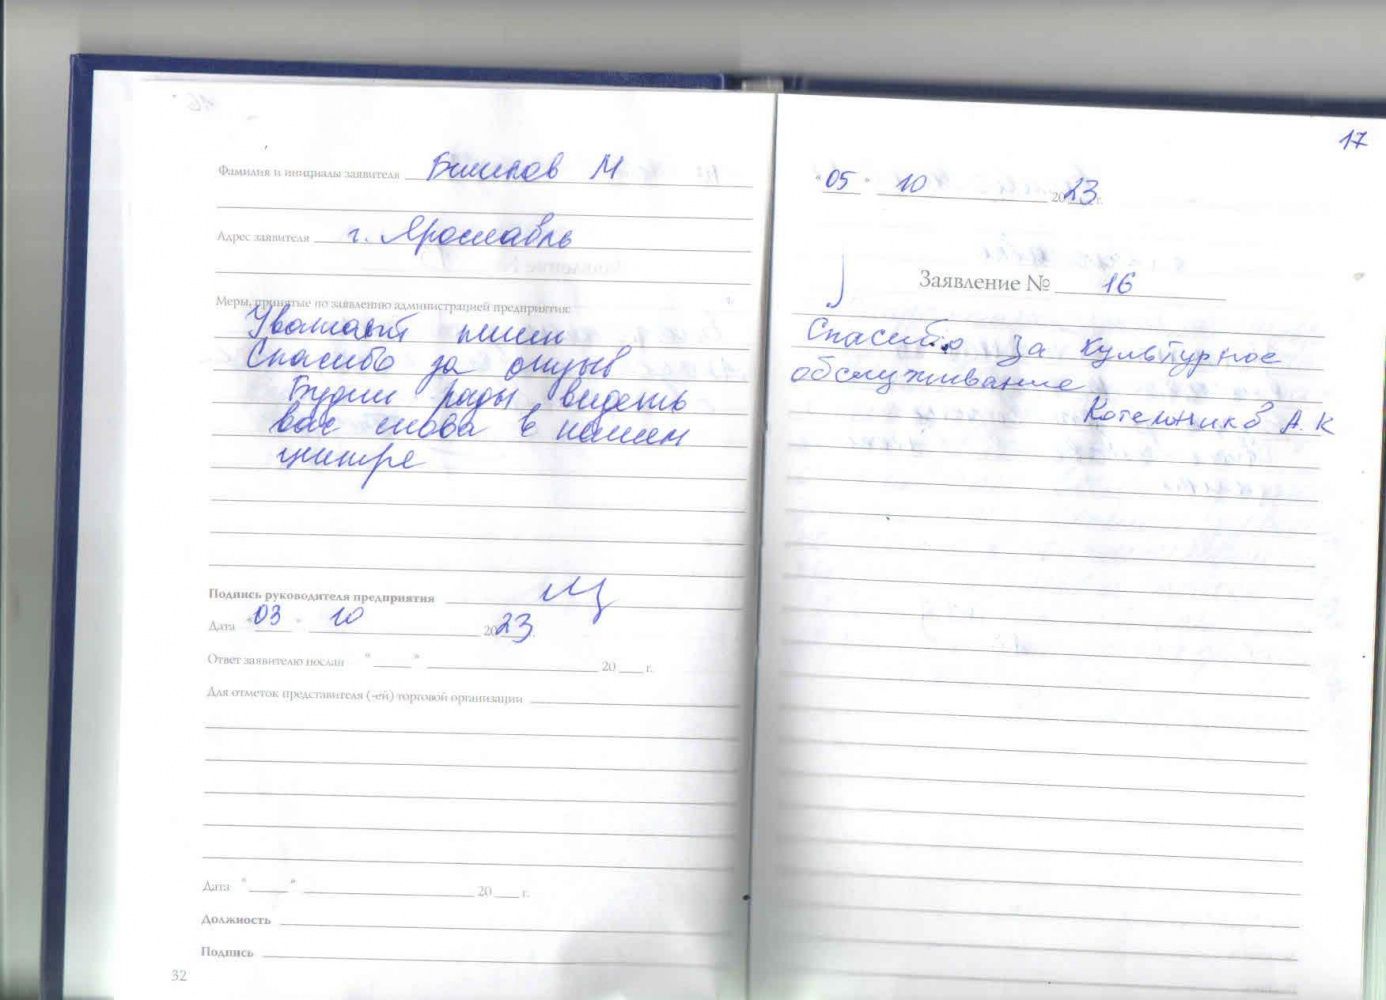 Фамилия и инициалы заявителя М
Адрес заявителя г. Ярославль
Меры, принятые по заявлению администрацией предприятия:
Спасибо за отзыв
Будем рады видеть
вас снова в нашем
центре
Подпись руководителя предприятия
Дата "03" 10 2023 г.
Ответ заявителю послан " " 20 г.
Для отметок представителя (-ей) торговой организации
Дата " " 20 г.
Должность
Подпись
32
17
"05" 10 2023 г.
Заявление № 16
Спасибо за культурное
обслуживание
Котельников А. К